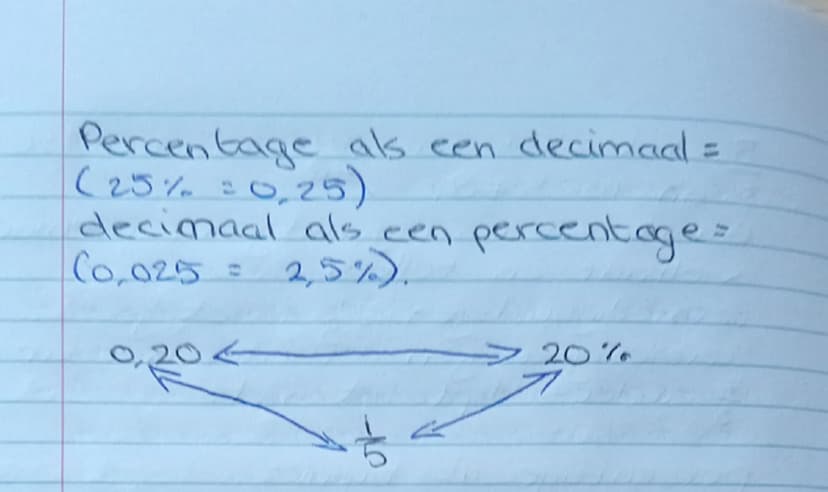 Percentage als een decimaal =
(25% = 0,25)
decimaal als een percentage =
(0,025 = 2,5%).
0,20 ⟷ 20%
1/5